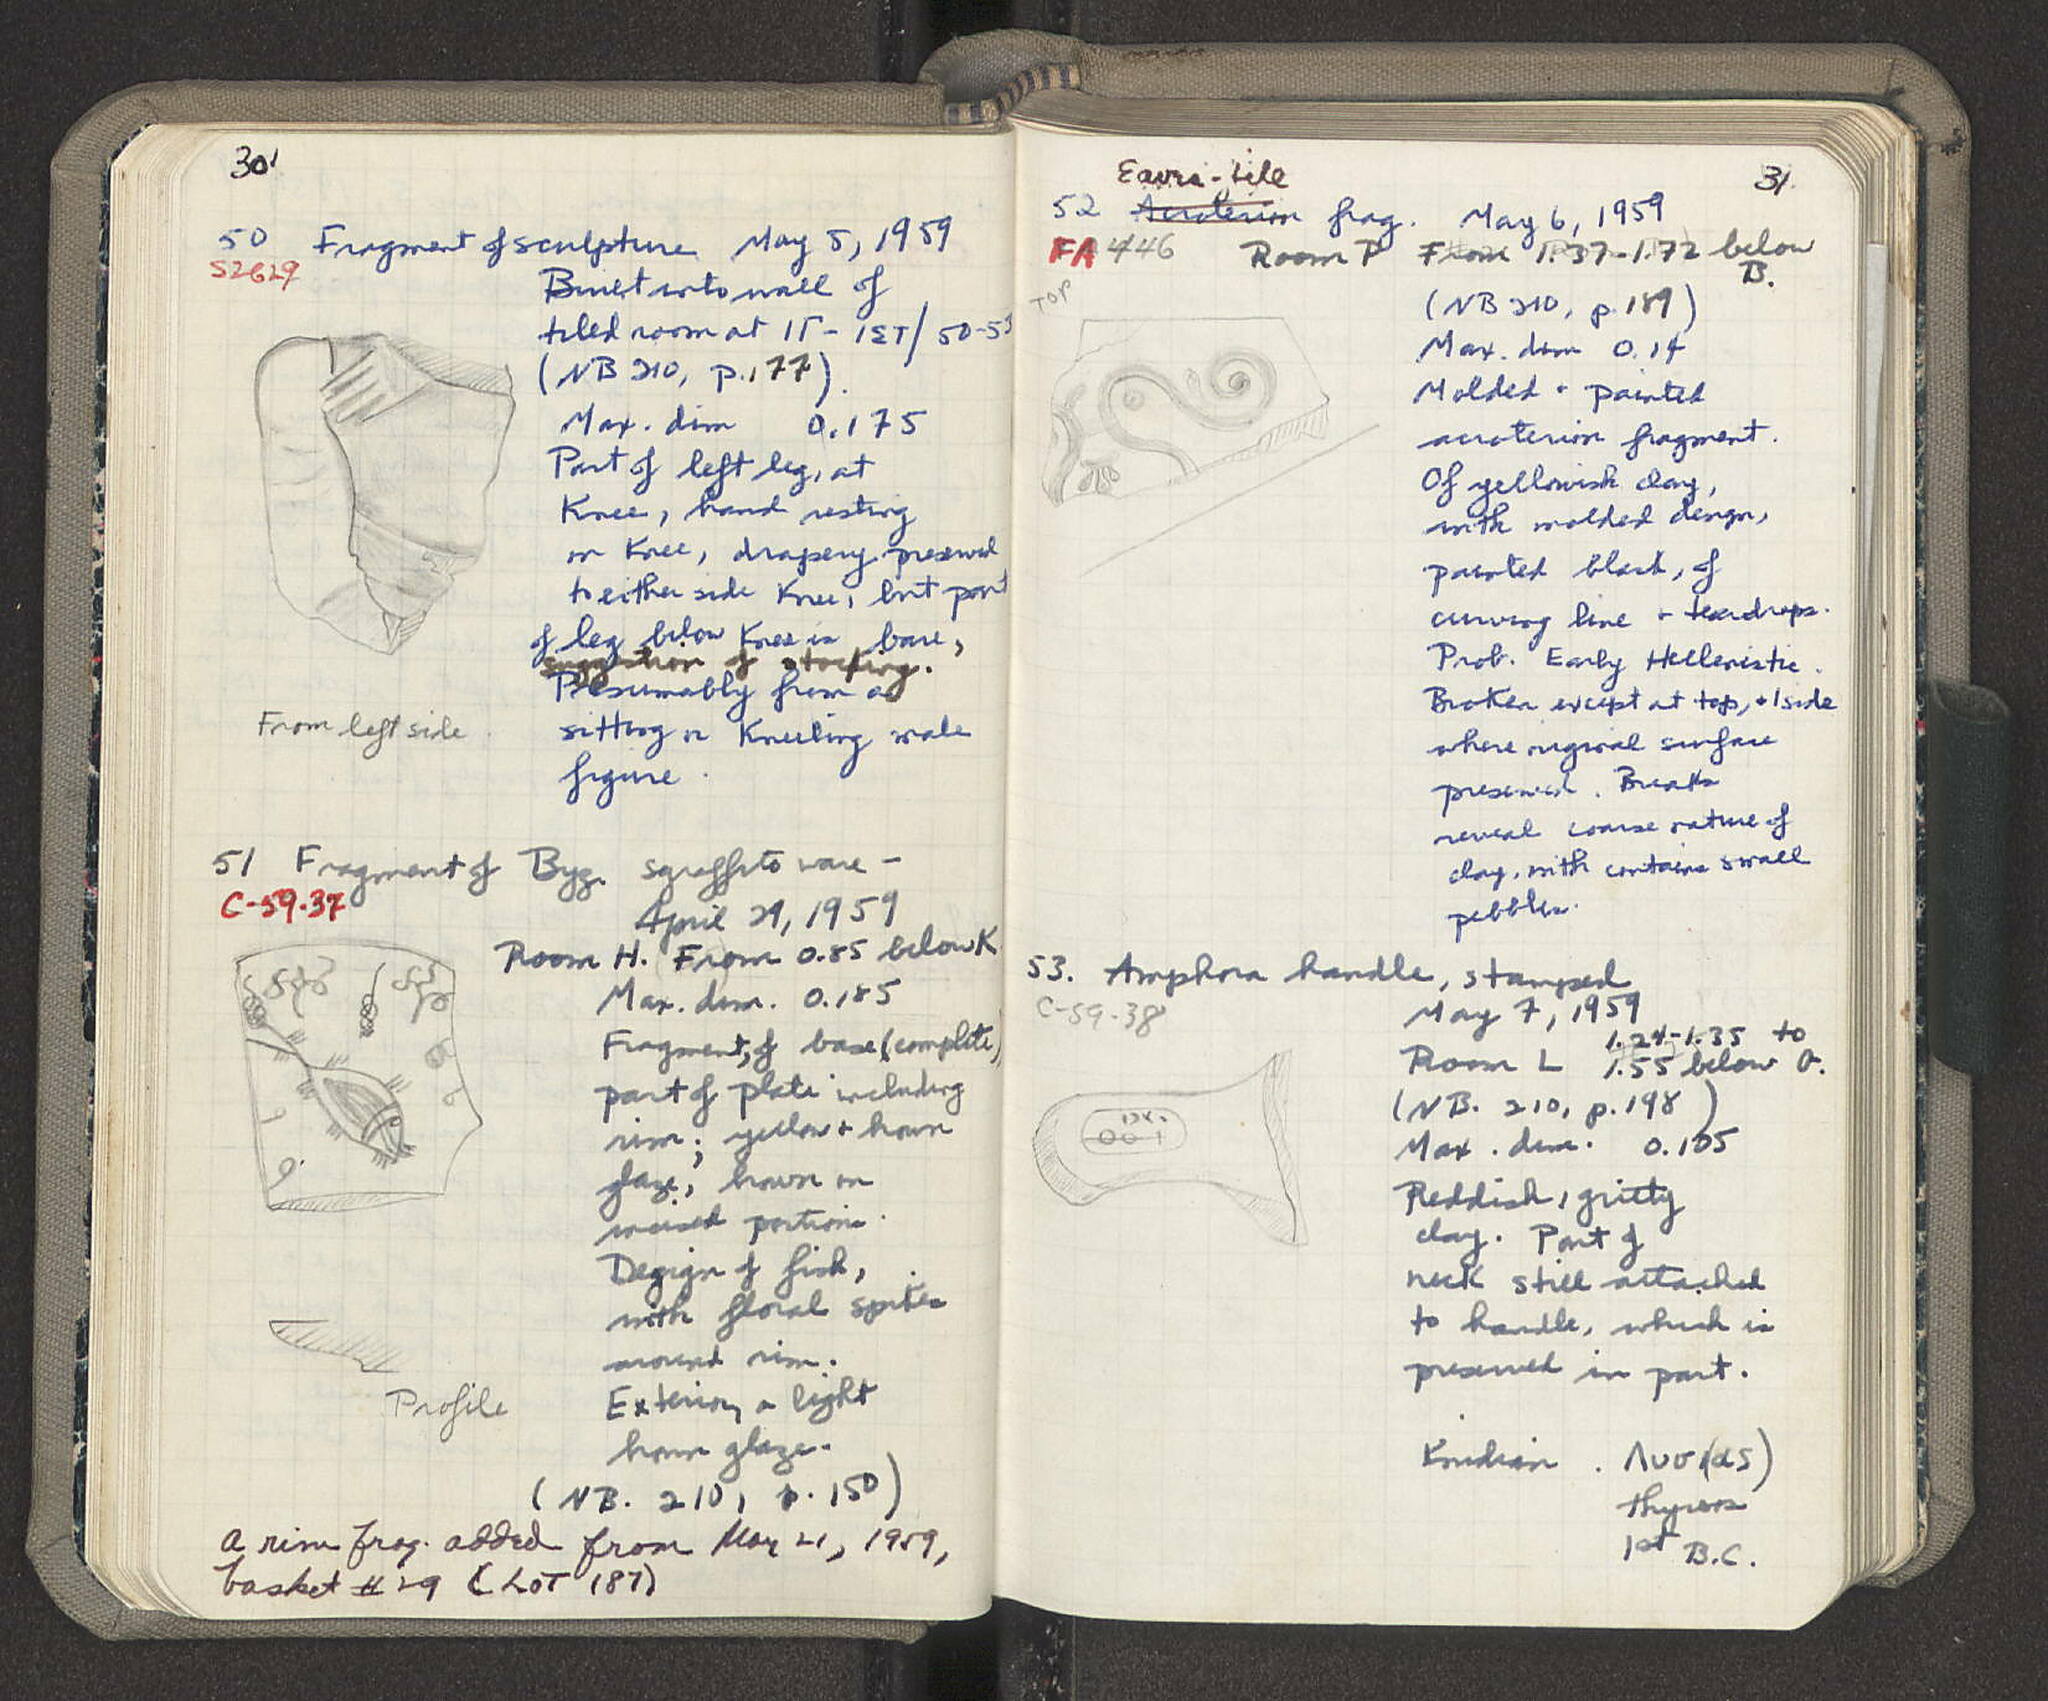 30
50 Fragment of sculpture May 5, 1959
S2629
Built into wall of
tiled room at 1Γ - 1ΣΤ/ 50-53
(NB 210, p. 177).
Max. dim 0.175
Part of left leg, at
Knee, hand resting
on Knee, drapery preserved
to either side Knee, but part
of leg below Knee is bare,
suggestion of stocking.
Presumably from a
sitting or Kneeling male
figure.
From left side
51 Fragment of Byz. sgraffito ware -
C-59-37
April 29, 1959
Room H. From 0.85 below K
Max. dim. 0.185
Fragment, of base (complete)
part of plate including
rim; yellow + brown
glaze, brown on
incised portions.
Design of fish,
with floral spikes
around rim.
Exterior, a light
brown glaze.
(NB. 210, p. 150)
Profile
A rim frag. added from May 21, 1959,
basket # 29 (LOT 187)
31.
Eaves-tile
52 Acroterion frag. May 6, 1959
FA 446 Room P From 1.37-1.72 below
B.
TOP
(NB 210, p. 189)
Max. dim 0.14
Molded + painted
acroterion fragment.
Of yellowish clay,
with molded design,
painted black, of
curving line + teardrops.
Prob. Early Hellenistic.
Broken except at top, + 1 side
where original surface
preserved. Breaks
reveal coarse nature of
clay, with contains small
pebbles.
53. Amphora handle, stamped
C-59-38
May 7, 1959
1.24-1.35 to
Room L 1.55 below σ.
(NB. 210, p. 198)
Max. dim. 0.105
Reddish, gritty
clay. Part of
neck still attached
to handle, which is
preserved in part.
Knidian. Λυσι(as)
thyrsos
1st B.C.